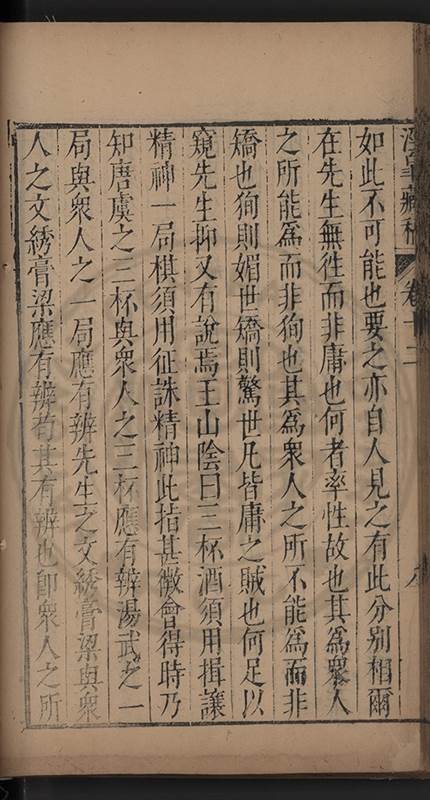 涇臯藏稿 卷十二 八
如此不可能也要之亦自人見之有此分别相爾
在先生無徃而非庸也何者率性故也其為衆人
之所能為而非狥也其為衆人之所不能為而非
矯也狥則媚世矯則驚世凡皆庸之賊也何足以
窺先生抑又有說焉王山陰曰三杯酒須用揖讓
精神一局棋須用征誅精神此拈甚微會得時乃
知唐虞之三杯與衆人之三杯應有辨湯武之一
局與衆人之一局應有辨先生之文綉膏粱與衆
人之文綉膏粱應有辨苟其有辨也卽衆人之所